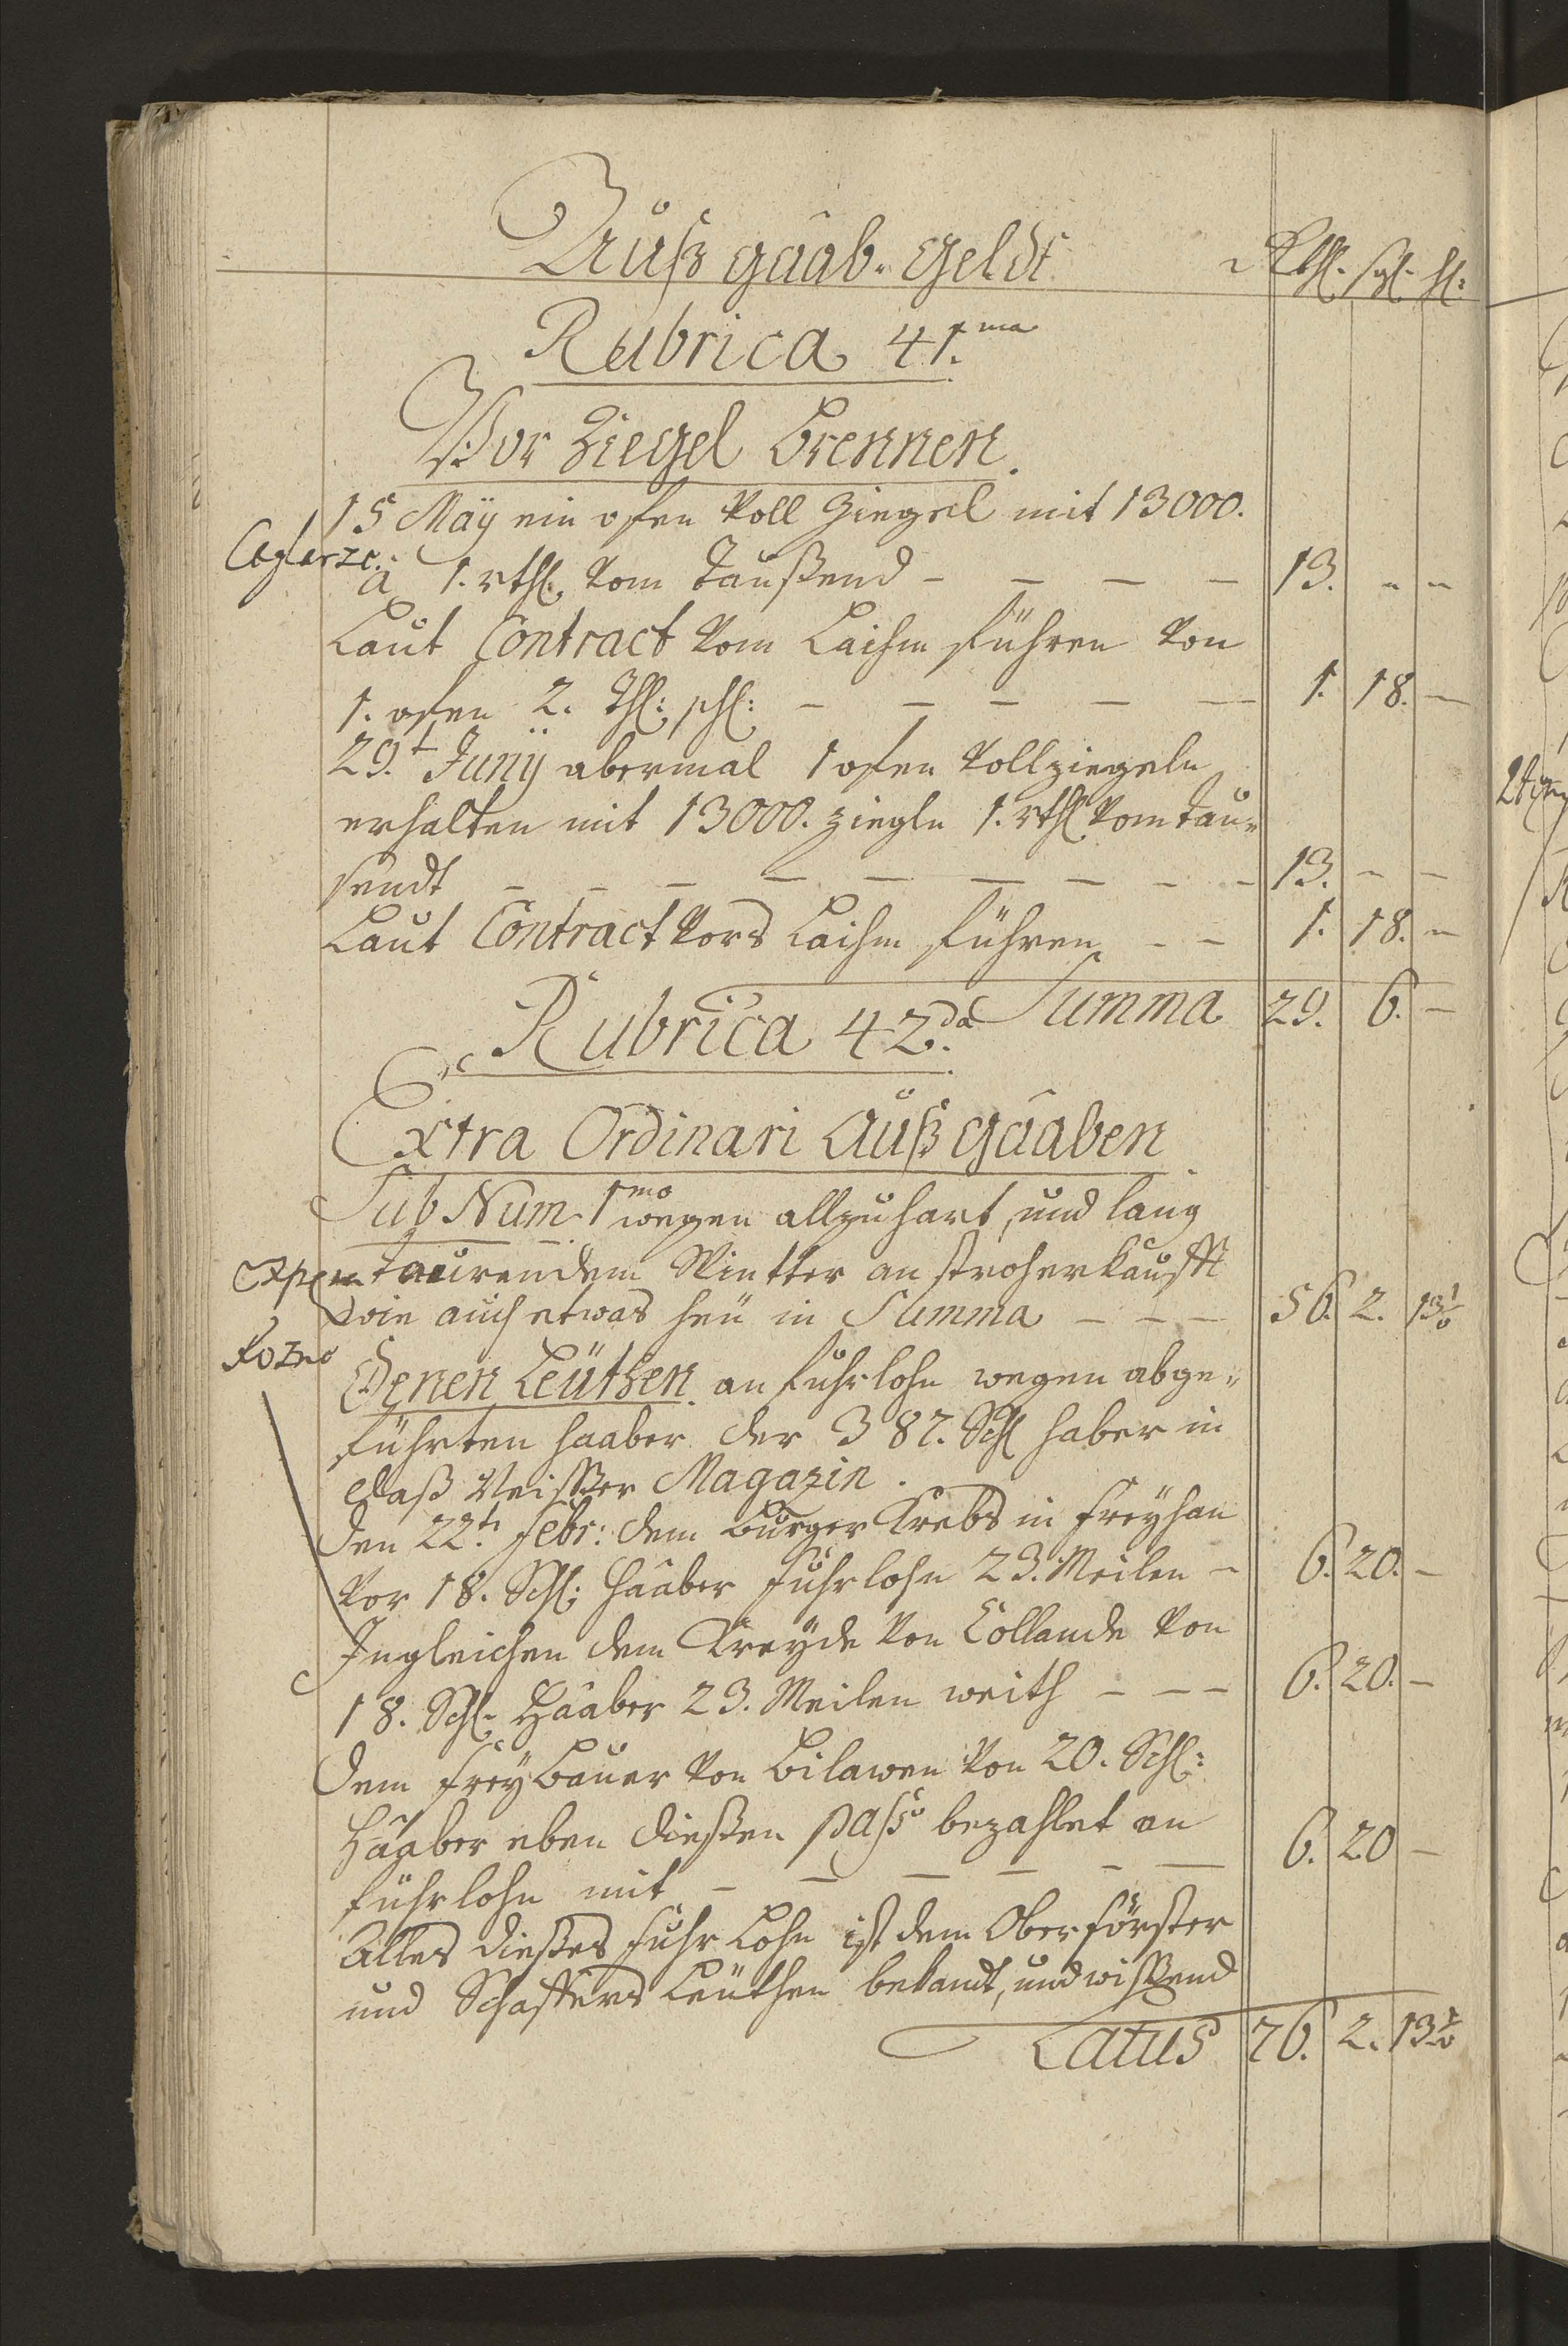 Außgaab Geldt Rthl. sgl. hl:
Rubrica 41.ma
Vor Ziegel Brennen.
15 Maÿ ein ofen voll Ziegel mit 13000.
Ceglarze.
à 1. rthl. vom Taußend – – – – 13. – –
Laut Contract vom Laihm führen von
1. ofen 2. Thl: schl: – – – – – 1. 18. –
29.t Junÿ abermal 1 ofen voll ziegeln
erhalten mit 13000. ziegln 1. rthl vom tau=
sendt – – – – – – – – – 13. – –
Laut Contract vors Laihm führen – – 1. 18. –
Summa 29. 6. –
Rubrica 42.da
Extra Ordinari Außgaaben
Sub Num. 1mo wegen allzu hart, und lang
taurendem Wintter an stroh erkaufft
wie auch etwas heü in Summa – – – 56. 2. 13
Denen Leüthen an fuhrlohn wegen abge=
führten haaber der 387. Schl haber in
daß Neisser Magazin.
den 22.t Febr: dem Burger Krebs in Freÿhan
vor 18. Schl: Haaber fuhrlohn 23. Meilen – 6. 20. –
Ingleichen dem Kreÿde von Collande von
18. Schl. Haaber 23. Meilen weith – – – 6. 20. –
dem freÿ bauer von Bilawen von 20. Schl:
Haaber eben dießen passo bezahlet an
fuhrlohn mit – – – – – – 6. 20 –
Alles dießes fuhr Lohn ist dem Oberförster
und Schaffers Leüthen bekandt, und wissend
Latus 76. 2. 13